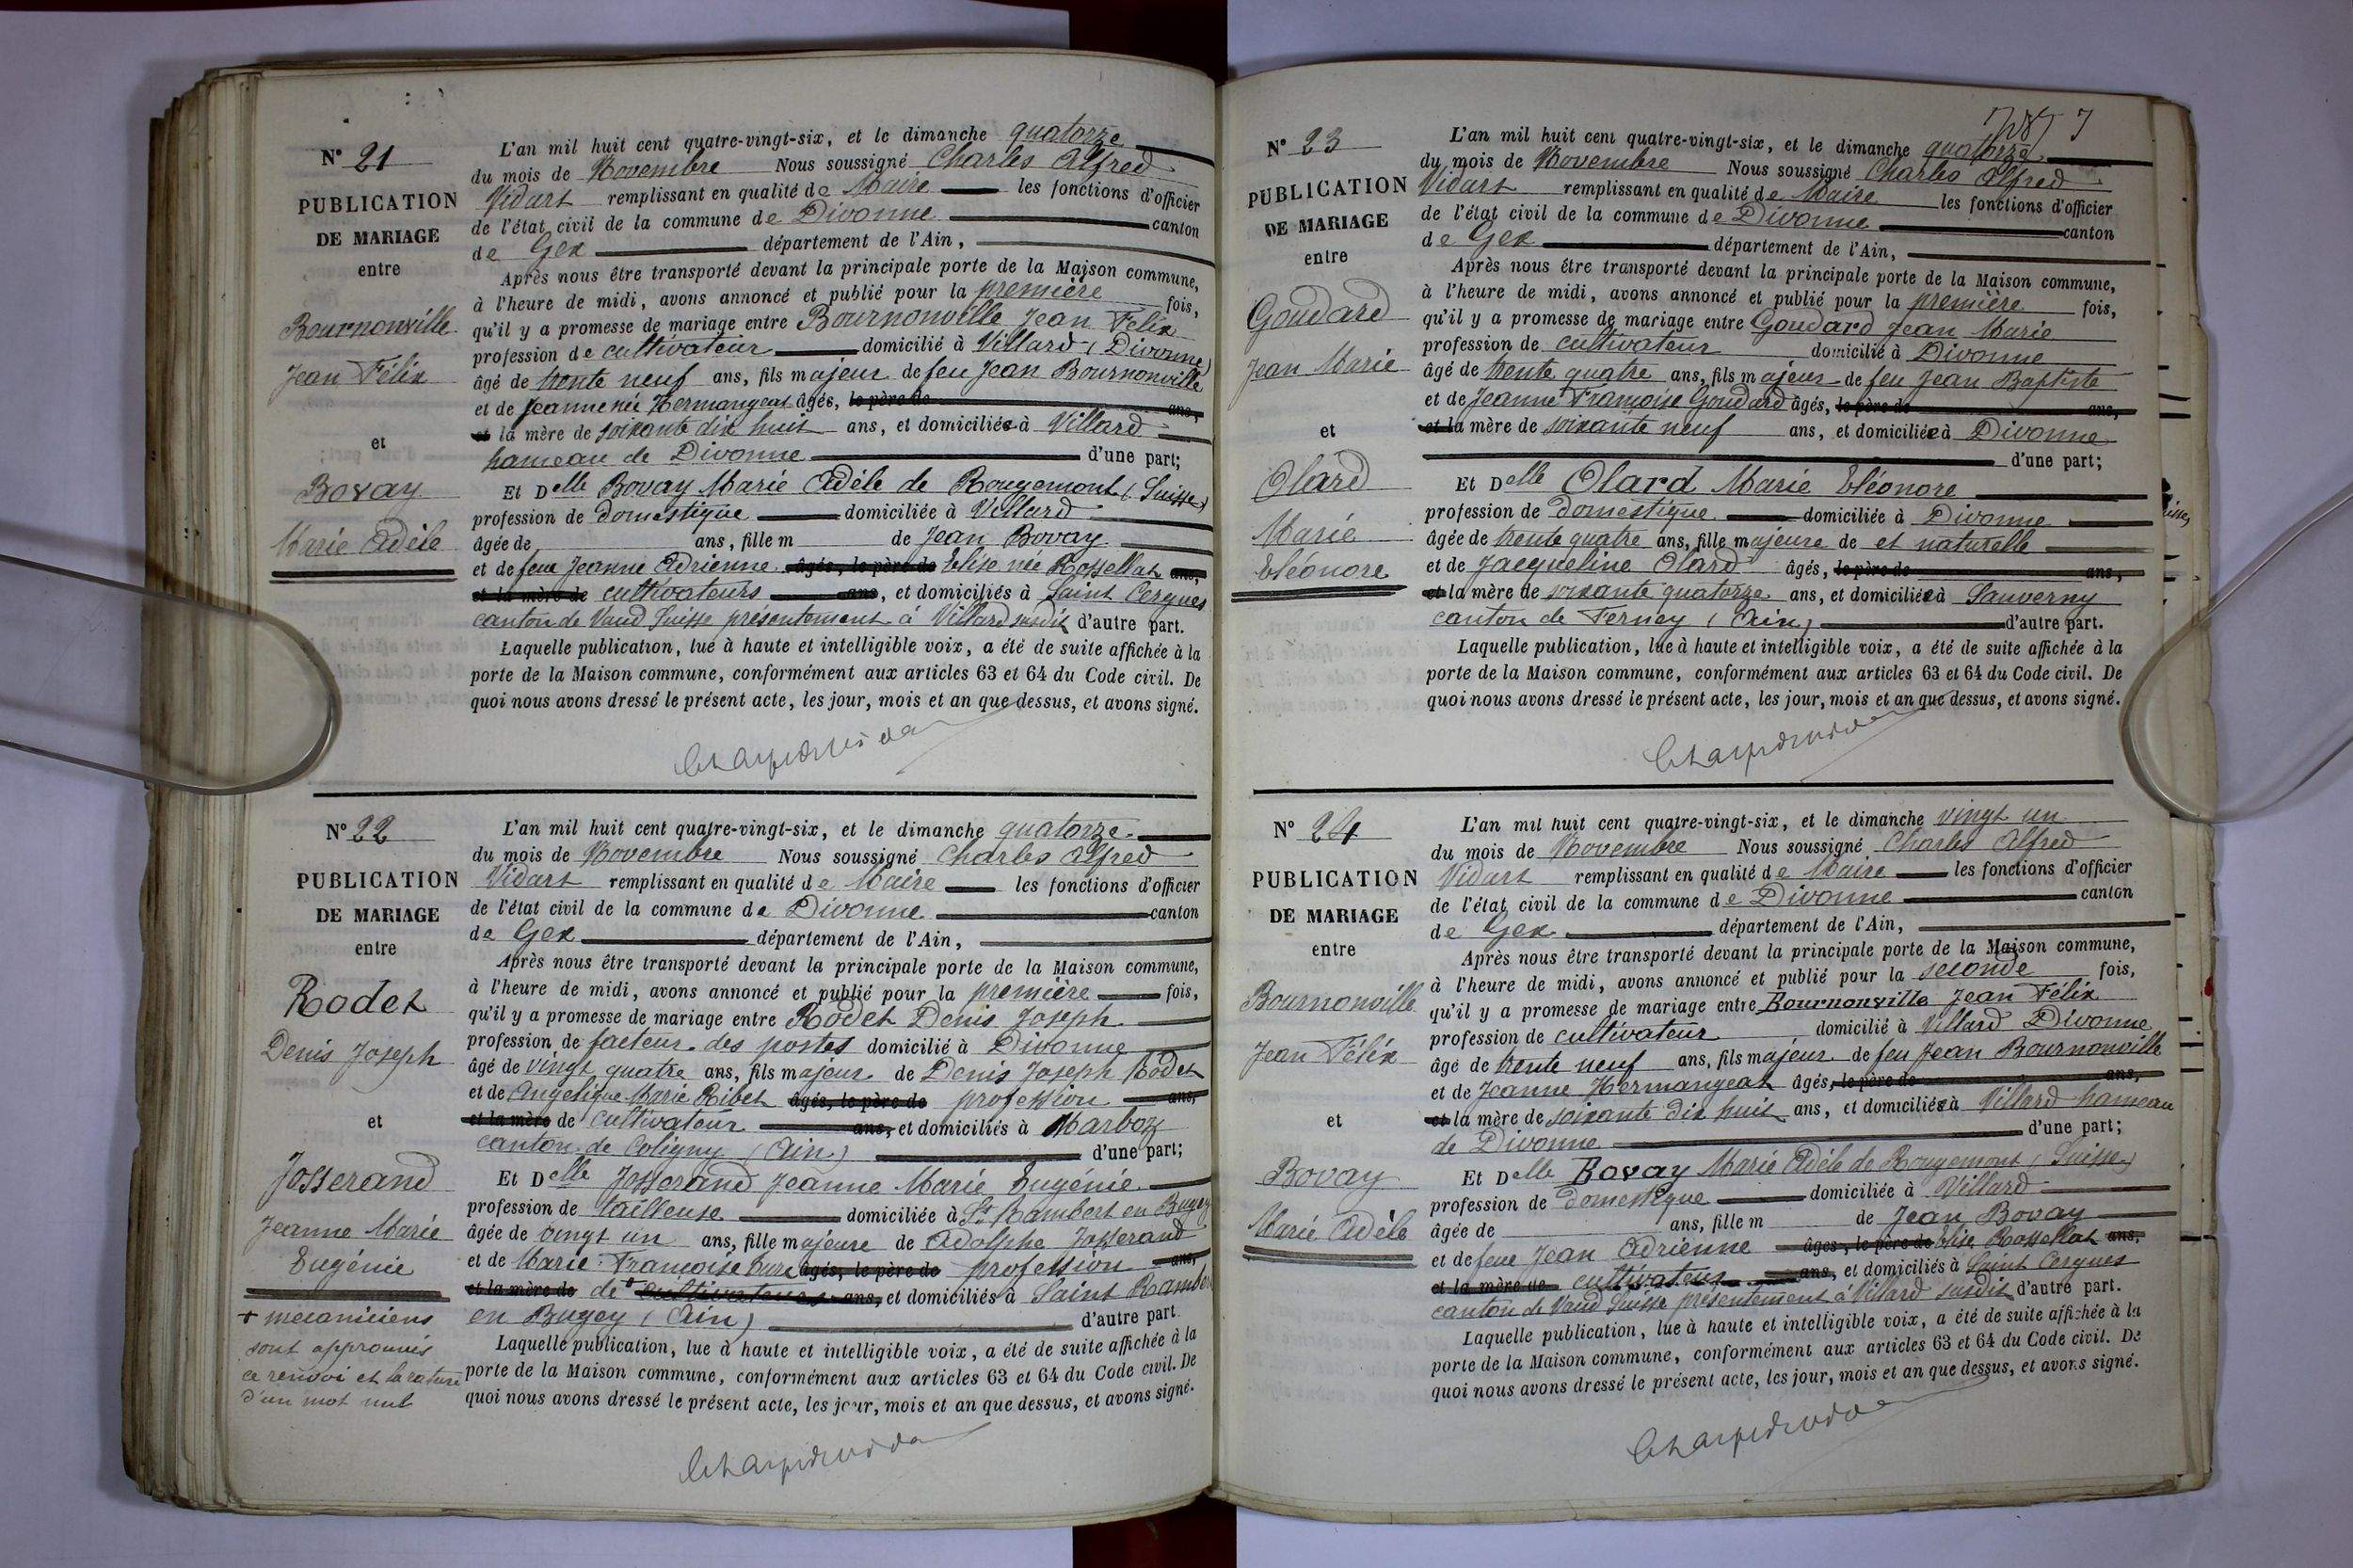 N° 21
PUBLICATION
DE MARIAGE
entre
Bournonville
Jean Félix
et
Bovay
Marie Adèle
L'an mil huit cent quatre-vingt-six, et le dimanche quatorze
du mois de Novembre Nous soussigné Charles Alfred
Vidart remplissant en qualité de Maire les fonctions d'officier
de l'état civil de la commune de Divonne canton
de Gex département de l'Ain,
Après nous être transporté devant la principale porte de la Maison commune,
à l'heure de midi, avons annoncé et publié pour la première fois,
qu'il y a promesse de mariage entre Bournonville Jean Félix
profession de cultivateur domicilié à Villard (Divonne)
âgé de trente neuf ans, fils majeur de feu Jean Bournonville
et de Jeanne née Hermangeat âgés, le père de ans,
et la mère de soixante dix huit ans, et domiciliés à Villard
hameau de Divonne d'une part;
Et Delle Bovay Marie Adèle de Rougemont (Suisse)
profession de domestique domiciliée à Villard
âgée de ans, fille m de Jean Bovay
et de feue Jeanne Adrienne âgés, le père de Elise née Rossellat ans,
et la mère de cultivateurs ans, et domiciliés à Saint Cergues
canton de Vaud Suisse présentement à Villard susdit d'autre part.
Laquelle publication, lue à haute et intelligible voix, a été de suite affichée à la
porte de la Maison commune, conformément aux articles 63 et 64 du Code civil. De
quoi nous avons dressé le présent acte, les jour, mois et an que dessus, et avons signé.
N° 22
PUBLICATION
DE MARIAGE
entre
Rodet
Denis Joseph
et
Josserand
Jeanne Marie
Eugénie
+ mecaniciens
sont approuvés
ce renvoi et la rature
d'un mot nul
L'an mil huit cent quatre-vingt-six, et le dimanche quatorze
du mois de Novembre Nous soussigné Charles Alfred
Vidart remplissant en qualité de Maire les fonctions d'officier
de l'état civil de la commune de Divonne canton
de Gex département de l'Ain,
Après nous être transporté devant la principale porte de la Maison commune,
à l'heure de midi, avons annoncé et publié pour la première fois,
qu'il y a promesse de mariage entre Rodet Denis Joseph
profession de facteur des postes domicilié à Divonne
âgé de vingt quatre ans, fils majeur de Denis Joseph Rodet
et de Angelique Marie Ribet âgés, le père de profession ans,
et la mère de cultivateur ans, et domiciliés à Marboz
canton de Coligny (Ain) d'une part;
Et Delle Josserand Jeanne Marie Eugénie
profession de tailleuse domiciliée à St Rambert en Bugey
âgée de vingt un ans, fille majeure de Adolphe Josserand
et de Marie Françoise âgés, le père de profession ans,
et la mère de de + cultivateurs ans, et domiciliés à Saint Rambert
en Bugey (Ain) d'autre part.
Laquelle publication, lue à haute et intelligible voix, a été de suite affichée à la
porte de la Maison commune, conformément aux articles 63 et 64 du Code civil. De
quoi nous avons dressé le présent acte, les jour, mois et an que dessus, et avons signé.
N° 23
PUBLICATION
DE MARIAGE
entre
Goudard
Jean Marie
et
Olard
Marie
Eléonore
L'an mil huit cent quatre-vingt-six, et le dimanche quatorze
du mois de Novembre Nous soussigné Charles Alfred
Vidart remplissant en qualité de Maire les fonctions d'officier
de l'état civil de la commune de Divonne canton
de Gex département de l'Ain,
Après nous être transporté devant la principale porte de la Maison commune,
à l'heure de midi, avons annoncé et publié pour la première fois,
qu'il y a promesse de mariage entre Goudard Jean Marie
profession de cultivateur domicilié à Divonne
âgé de trente quatre ans, fils majeur de feu Jean Baptiste
et de Jeanne Françoise Goudard âgés, le père de ans,
et la mère de soixante neuf ans, et domiciliée à Divonne
d'une part;
Et Delle Olard Marie Eléonore
profession de domestique domiciliée à Divonne
âgée de trente quatre ans, fille majeure de et naturelle
et de Jacqueline Olard âgés, le père de ans,
et la mère de soixante quatorze ans, et domiciliée à Sauverny
canton de Ferney (Ain) d'autre part.
Laquelle publication, lue à haute et intelligible voix, a été de suite affichée à la
porte de la Maison commune, conformément aux articles 63 et 64 du Code civil. De
quoi nous avons dressé le présent acte, les jour, mois et an que dessus, et avons signé.
N° 24
PUBLICATION
DE MARIAGE
entre
Bournonville
Jean Félix
et
Bovay
Marie Adèle
L'an mil huit cent quatre-vingt-six, et le dimanche vingt un
du mois de Novembre Nous soussigné Charles Alfred
Vidart remplissant en qualité de Maire les fonctions d'officier
de l'état civil de la commune de Divonne canton
de Gex département de l'Ain,
Après nous être transporté devant la principale porte de la Maison commune,
à l'heure de midi, avons annoncé et publié pour la seconde fois,
qu'il y a promesse de mariage entre Bournonville Jean Félix
profession de cultivateur domicilié à Villard Divonne
âgé de trente neuf ans, fils majeur de feu Jean Bournonville
et de Jeanne Hermangeat âgés, le père de ans,
et la mère de soixante dix huit ans, et domiciliés à Villard hameau
de Divonne d'une part;
Et Delle Bovay Marie Adèle de Rougemont (Suisse)
profession de domestique domiciliée à Villard
âgée de ans, fille m de Jean Bovay
et de feue Jean Adrienne âgés, le père de Elise Rossellat ans,
et la mère de cultivateur ans, et domiciliés à Saint Cergues
canton de Vaud Suisse présentement à Villard susdit d'autre part.
Laquelle publication, lue à haute et intelligible voix, a été de suite affichée à la
porte de la Maison commune, conformément aux articles 63 et 64 du Code civil. De
quoi nous avons dressé le présent acte, les jour, mois et an que dessus, et avons signé.